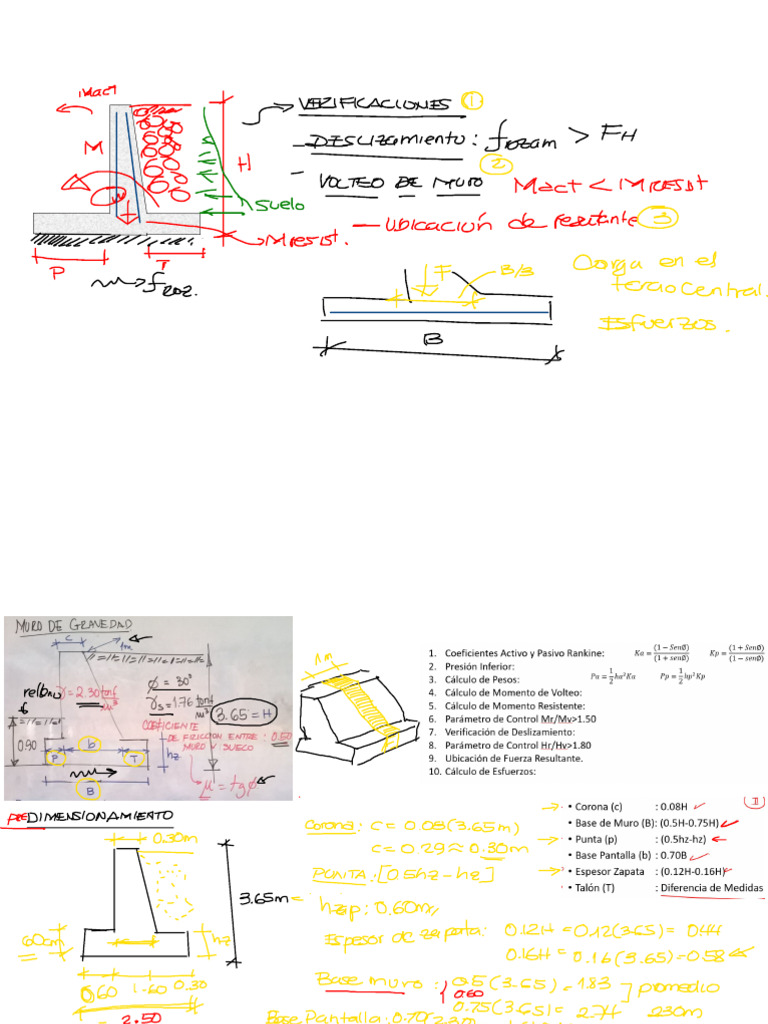 Mact
VERIFICACIONES 1
DESLIZAMIENTO: frozam > FH
2
VOLTEO DE MURO Mact < MRESIST
Ubicación de resultante 3
M
H
W
SUELO
MRESIST.
P
T
froz.
F
B/3
Carga en el
tercio central.
Esfuerzos.
B
MURO DE GRAVEDAD
c
1m
relleno
γ = 2.30 tonf/m³
∅ = 30°
γs = 1.76 tonf/m³
3.65 = H
COEFICIENTE
DE FRICCION ENTRE : 0.50
MURO Y SUELO
0.90
P
b
T
hz
B
μ = tg∅
1m
1. Coeficientes Activo y Pasivo Rankine: Ka = (1 − SenØ)/(1 + senØ) Kp = (1 + SenØ)/(1 − senØ)
2. Presión Inferior:
3. Cálculo de Pesos: Pa = 1/2 ha²Ka Pp = 1/2 hp²Kp
4. Cálculo de Momento de Volteo:
5. Cálculo de Momento Resistente:
6. Parámetro de Control Mr/Mv>1.50
7. Verificación de Deslizamiento:
8. Parámetro de Control Hr/Hv>1.80
9. Ubicación de Fuerza Resultante.
10. Cálculo de Esfuerzos:
• Corona (c) : 0.08H
• Base de Muro (B): (0.5H-0.75H)
• Punta (p) : (0.5hz-hz)
• Base Pantalla (b) : 0.70B
• Espesor Zapata : (0.12H-0.16H)
• Talón (T) : Diferencia de Medidas
PREDIMENSIONAMIENTO
0.30m
3.65m =
60cm
hz
0.60 1.60 0.30
2.50
Corona: c = 0.08(3.65m)
c = 0.29 ≈ 0.30m
PUNTA: [0.5hz - hz]
hzap: 0.60m
Espesor de zapata: 0.12H = 0.12(3.65) = 0.44
0.16H = 0.16(3.65) = 0.58
Base muro: 0.5(3.65) = 1.83
0.60
promedio
0.75(3.65) = 2.74 2.30m
Base Pantalla: 0.70(2.30)